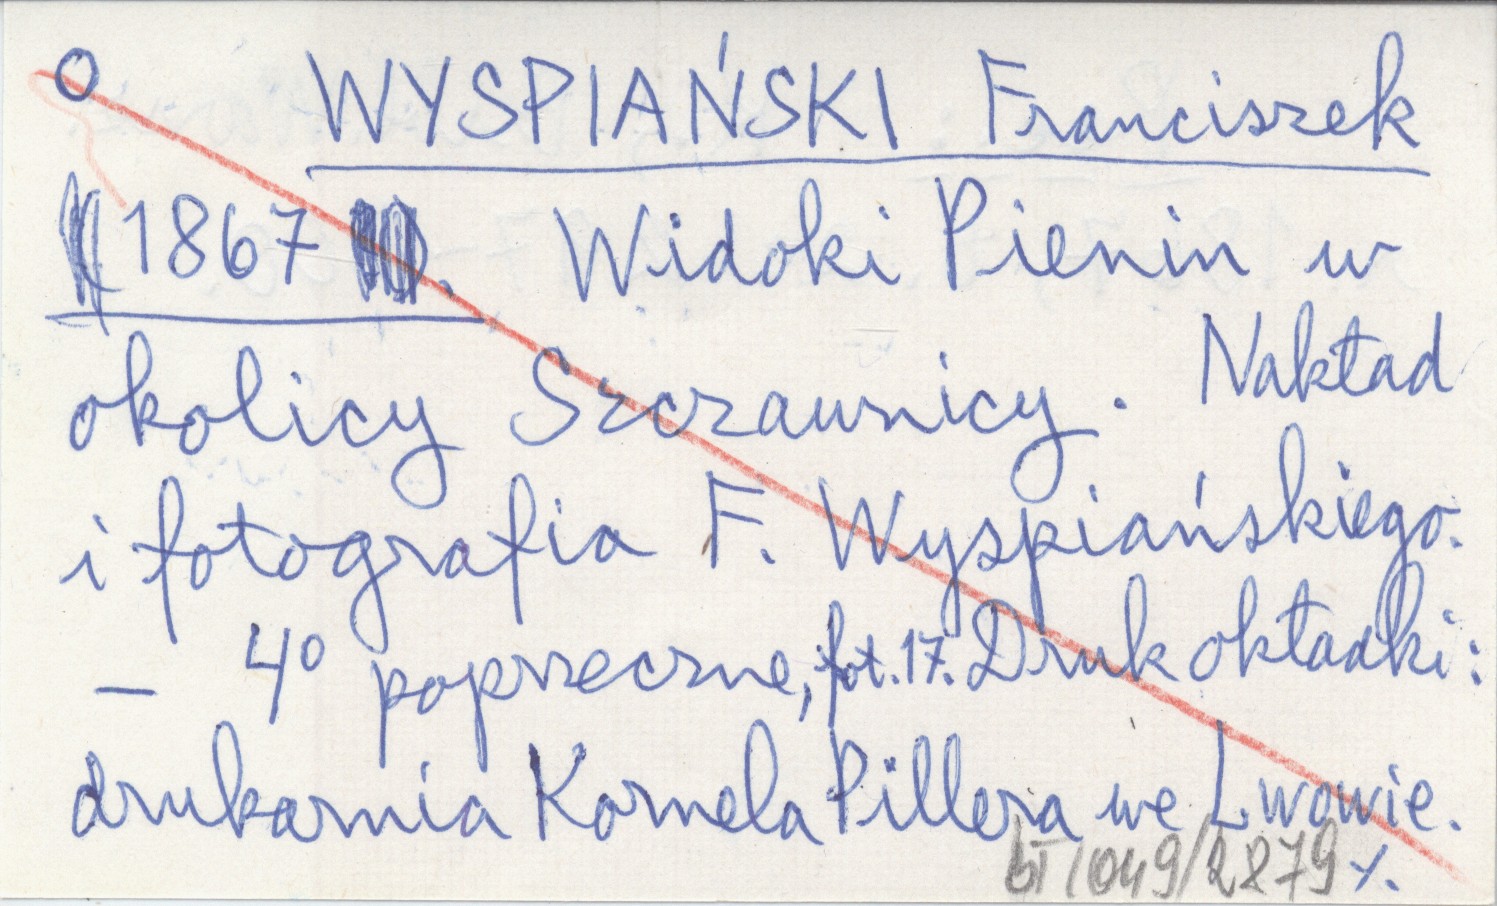 O WYSPIAŃSKI Franciszek
1867. Widoki Pienin w
okolicy Szczawnicy. Nakład
i fotografia F. Wyspiańskiego.
– 4º poprzeczne, fot. 17. Druk okładki:
drukarnia Kornela Pillera we Lwowie.
bT/049/2879 %.